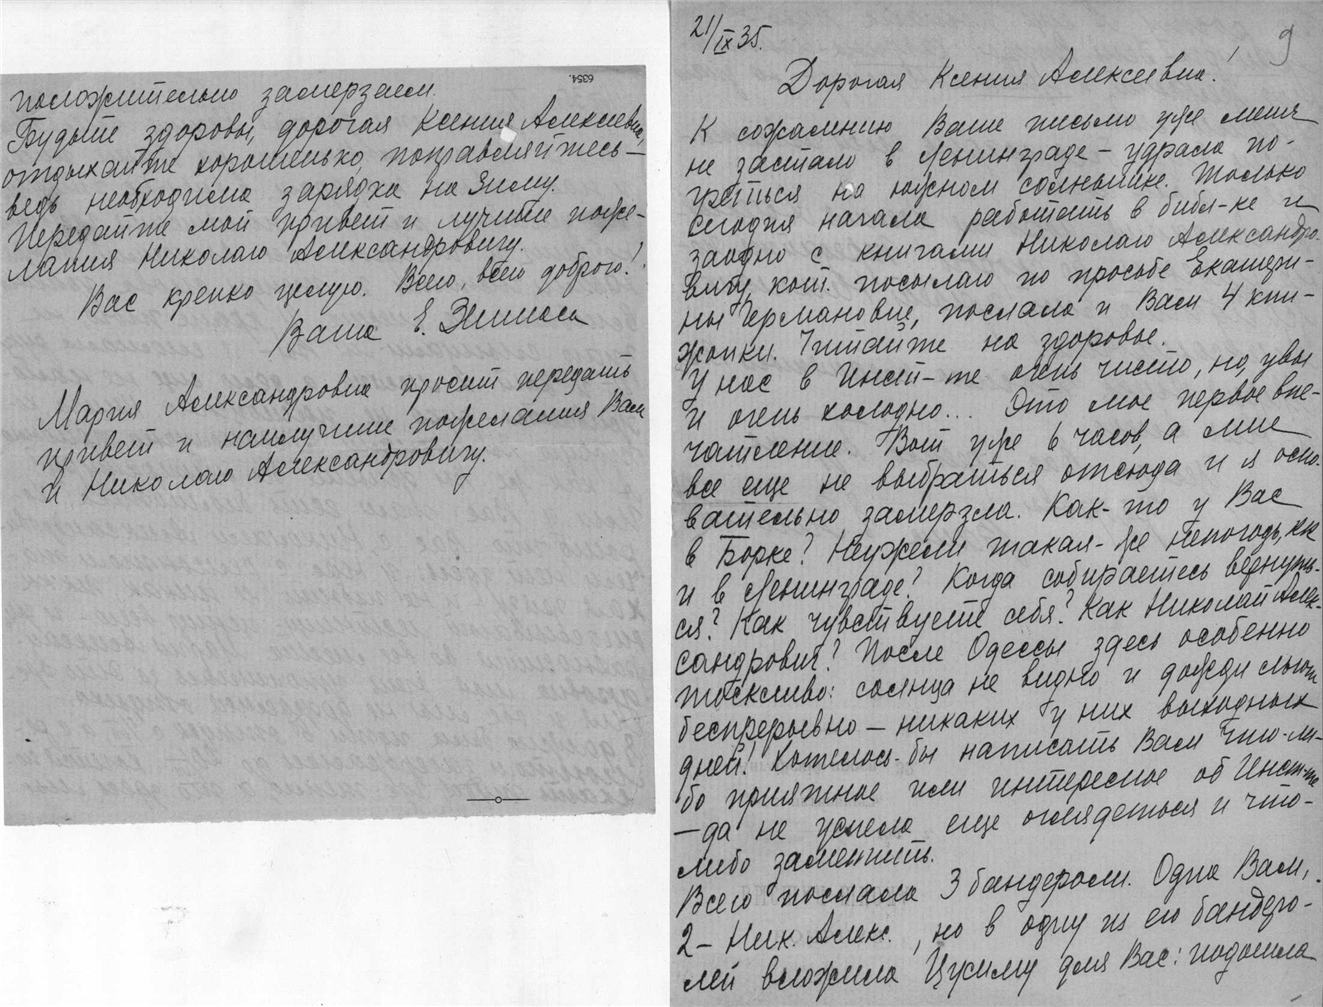 21/IX 35.
9
Дорогая Ксения Алексеевна!
К сожалению Ваше письмо уже меня
не застало в Ленинграде – удрала по-
греться на южном солнышке. Только
сегодня начала работать в библ-ке и
заодно с книгами Николаю Александро-
вичу, кот. посылаю по просьбе Екатери-
ны Германовны, послала и Вам 4 кни-
жонки. Читайте на здоровье.
У нас в Инсти-те очень чисто, но, увы
и очень холодно... Это мое первое впе-
чатление. Вот уже 6 часов, а мне
все еще не выбраться отсюда и я осно-
вательно замерзла. Как-то у Вас
в Борке? Неужели такая-же непогодь, как
и в Ленинграде? Когда собираетесь вернуть-
ся? Как чувствуете себя? Как Николай Алек-
сандрович? После Одессы здесь особенно
тоскливо: солнца не видно и дожди льют
беспрерывно – никаких у них выходных
дней! Хотелось-бы написать Вам что-ли-
бо приятное или интересное об Инст-те
– да не успела еще оглядеться и что-
либо заметить.
Всего послала 3 бандероли. Одна Вам,
2 – Ник. Алекс., но в одну из его бандеро-
лей вложила Цусиму для Вас: подошла
6354.
положительно замерзаем.
Будьте здоровы, дорогая Ксения Алексеевна,
отдыхайте хорошенько, поправляйтесь –
ведь необходима зарядка на зиму.
Передайте мой привет и лучшие поже-
лания Николаю Александровичу.
Вас крепко целую. Всего, всего доброго!
Ваша Е.
Мария Александровна просит передать
привет и наилучшие пожелания Вам
и Николаю Александровичу.